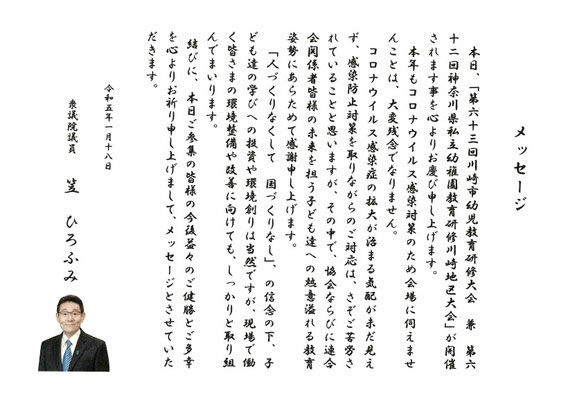 メッセージ
本日、「第六十三回川崎市幼児教育研修大会 兼 第六
十二回神奈川県私立幼稚園教育研修川崎地区大会」が開催
されます事を心よりお慶び申し上げます。
本年もコロナウイルス感染対策のため会場に伺えませ
んことは、大変残念でなりません。
コロナウイルス感染症の拡大が治まる気配が未だ見え
ず、感染防止対策を取りながらのご対応は、さぞご苦労さ
れていることと思いますが、その中で、協会ならびに連合
会関係者皆様の未来を担う子ども達への熱意溢れる教育
姿勢にあらためて感謝申し上げます。
「人づくりなくして 国づくりなし」、の信念の下、子
ども達の学びへの投資や環境創りは当然ですが、現場で働
く皆さまの環境整備や改善に向けても、しっかりと取り組
んでまいります。
結びに、本日ご参集の皆様の今後益々のご健勝とご多幸
を心よりお祈り申し上げまして、メッセージとさせていた
だきます。
令和五年一月十八日
衆議院議員 笠 ひろふみ